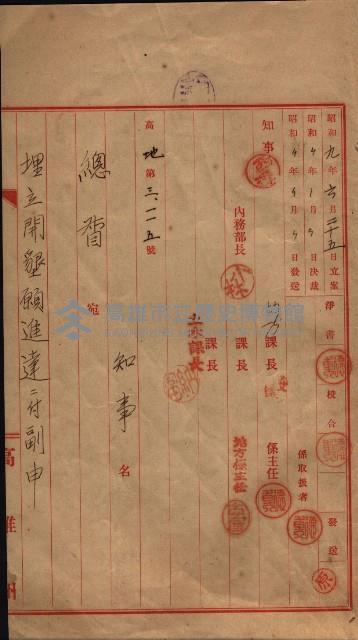 昭和九年六月二十五日立案
昭和9年7月9日決裁
昭和9年9月5日發送
淨書
校合
發送
原
知事
內務部長
地方課長
土木課長
課長
係
係主任
地方係主任
係取扱者
高地第三一一五號
總督宛
知事名
埋立開墾願進達ニ付副申
高雄州
高雄市立歷史博物館